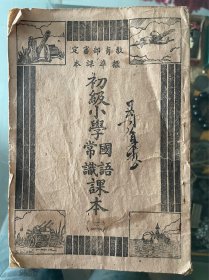 教育部審定
標準課本
初級小學國語課本
常識